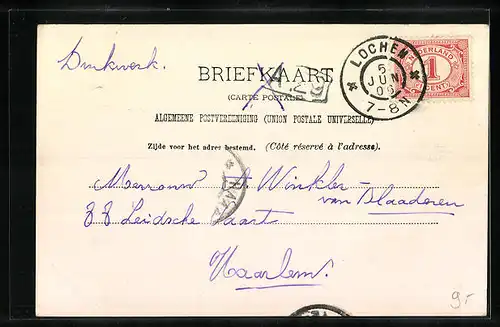 Drukwerk.
BRIEFKAART
(CARTE POSTALE)
ALGEMEENE POSTVEREENIGING (UNION POSTALE UNIVERSELLE)
Zijde voor het adres bestemd. (Côté réservé à l'adresse).
LOCHEM
5
JUN
09
7-8N
NEDERLAND
1
CENT
Mevrouw Winkler-
van Blaaderen
88 Leidsche Vaart
Haarlem.
9.-